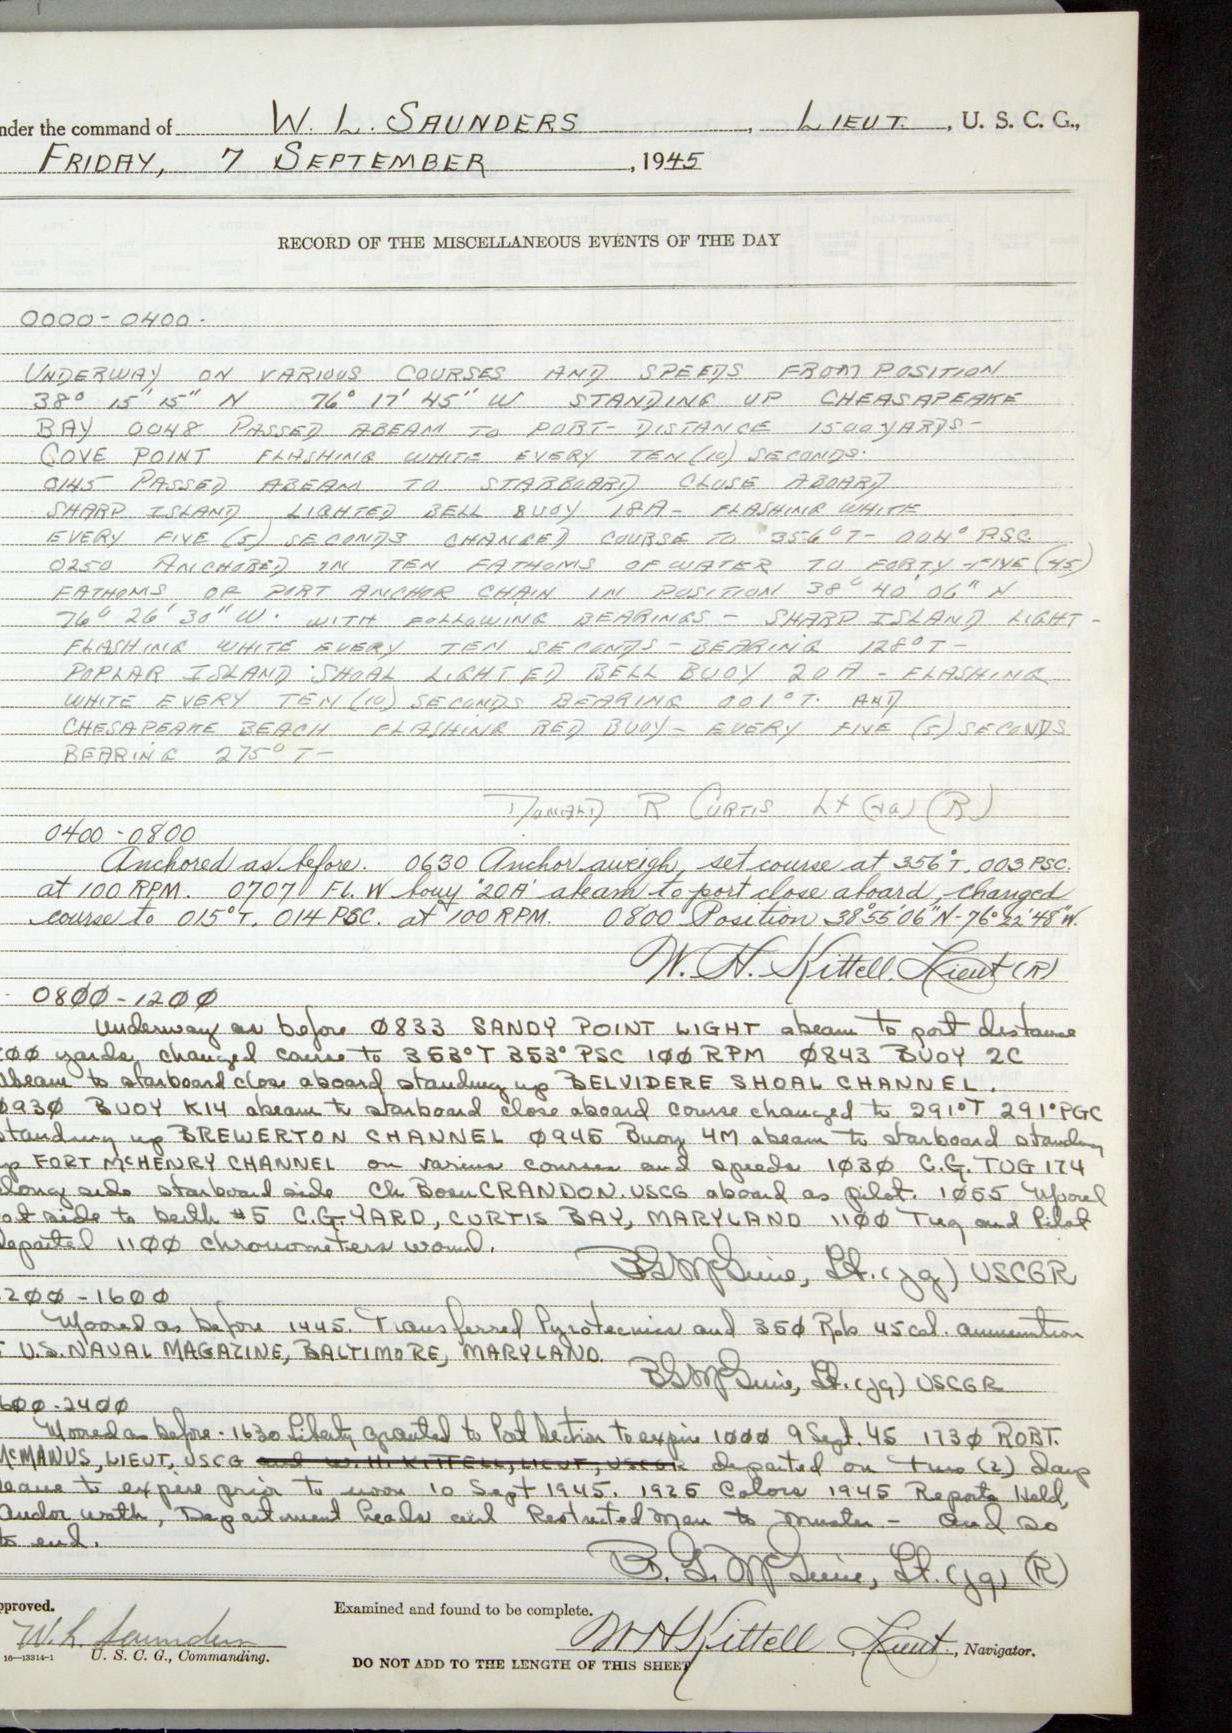 nder the command of W. L. SAUNDERS, LIEUT., U. S. C. G.,
FRIDAY, 7 SEPTEMBER, 1945
RECORD OF THE MISCELLANEOUS EVENTS OF THE DAY
0000-0400.
UNDERWAY ON VARIOUS COURSES AND SPEEDS FROM POSITION
38° 15" 15" N 76° 17' 45" W STANDING UP CHEASAPEAKE
BAY 0048 PASSED ABEAM TO PORT- DISTANCE 1500 YARDS-
COVE POINT FLASHING WHITE EVERY TEN (10) SECONDS.
0145 PASSED ABEAM TO STARBOARD CLOSE ABOARD
SHARP ISLAND LIGHTED BELL BUOY 18A- FLASHING WHITE
EVERY FIVE (5) SECONDS CHANGED COURSE TO 356° T- 004° PSC.
0250 ANCHORED IN TEN FATHOMS OF WATER TO FORTY-FIVE (45)
FATHOMS OF PORT ANCHOR CHAIN IN POSITION 38° 40' 06" N
76° 26' 30" W. WITH FOLLOWING BEARINGS - SHARP ISLAND LIGHT -
FLASHING WHITE EVERY TEN SECONDS - BEARING 128° T-
POPLAR ISLAND SHOAL LIGHTED BELL BUOY 20A - FLASHING
WHITE EVERY TEN (10) SECONDS BEARING 001° T. AND
CHESAPEAKE BEACH FLASHING RED BUOY- EVERY FIVE (5) SECONDS
BEARING 275° T-
Donald R Curtis Lt (jg) (R)
0400-0800
Anchored as before. 0630 Anchor aweigh, set course at 356° T, 003 PSC.
at 100 RPM. 0707 FL. W bouy '20A' abeam to port close aboard, changed
course to 015° T. 014 PSC. at 100 RPM. 0800 Position 38° 55' 06" N-76° 22' 48" W.
W. H. Kittell, Lieut (R)
0800-1200
Underway as before 0833 SANDY POINT LIGHT abeam to port distance
00 yards, changed course to 353° T 353° PSC 100 RPM 0843 BUOY 2C
abeam to starboard close aboard standing up BELVIDERE SHOAL CHANNEL.
0930 BUOY K14 abeam to starboard close aboard course changed to 291° T 291° PGC
standing up BREWERTON CHANNEL 0945 Buoy 4M abeam to starboard standing
up FORT McHENRY CHANNEL on various courses and speeds 1030 C.G. TUG 174
long side starboard side Ch Bosn CRANDON. USCG aboard as pilot. 1055 Moored
side to berth #5 C.G. YARD, CURTIS BAY, MARYLAND 1100 Tug and Pilot
departed 1100 chronometers wound.
BG McGuire, Lt. (jg) USCGR
200-1600
Moored as before 1445. Transferred Pyrotecnics and 350 Rds 45 cal. ammunition
U.S. NAVAL MAGAZINE, BALTIMORE, MARYLAND.
BG McGuire, Lt. (jg) USCGR
600-2400
Moored as before - 1630 Liberty granted to Port Section to expire 1000 9 Sept. 45 1730 ROBT.
McMANUS, LIEUT, USCG and W. H. KITTELL, LIEUT, USCGR departed on two (2) days
leave to expire prior to noon 10 Sept 1945. 1925 Colors 1945 Reports Held,
Anchor watch, Department heads and Restricted Men to muster - And so
to end.
B. G. McGuire, Lt. (jg) (R)
pproved.
W. L. Saunders
U. S. C. G., Commanding.
16-13314-1
Examined and found to be complete.
W H Kittell, Lieut., Navigator.
DO NOT ADD TO THE LENGTH OF THIS SHEET